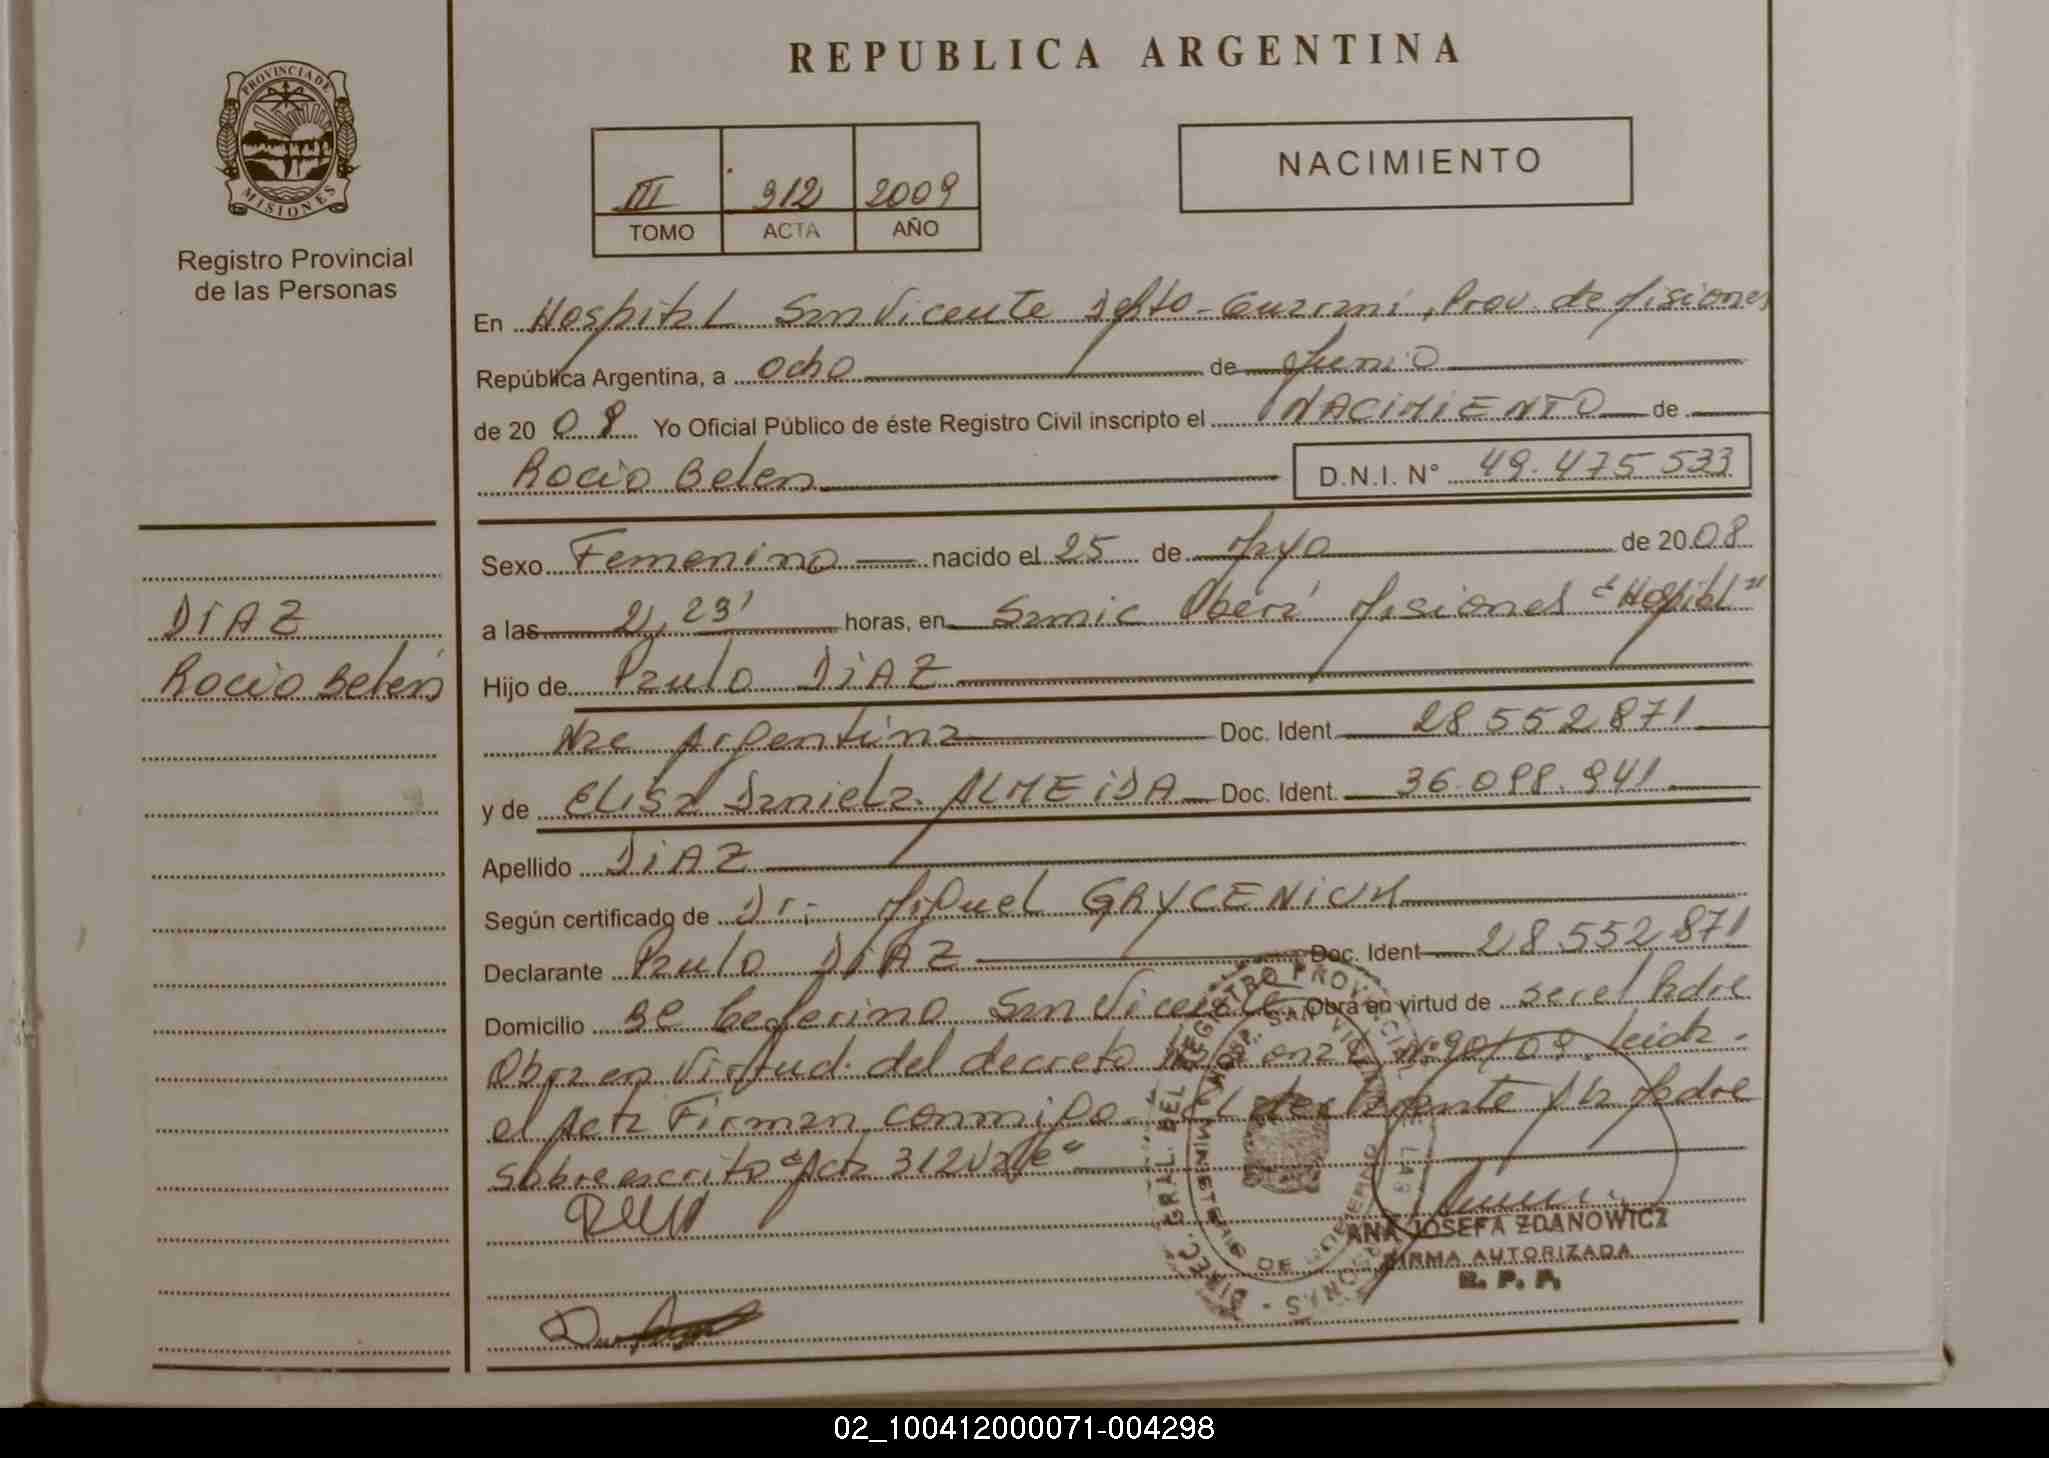 REPUBLICA ARGENTINA
PROVINCIA DE
MISIONES
Registro Provincial
de las Personas
III 312 2009
TOMO ACTA AÑO
NACIMIENTO
En Hospital San Vicente Dpto. Guarani, Prov. de Misiones
República Argentina, a ocho de Junio
de 20 0 Yo Oficial Público de éste Registro Civil inscripto el NACIMIENTO de
Rocio Belen D.N.I. N° 49.475.533
Sexo Femenino nacido el 25 de Mayo de 20 08
a las 2,23' horas, en Samic Oberá Misiones "Hospital"
DIAZ
Rocio Belén
Hijo de Paulo DIAZ
Nac Argentina Doc. Ident. 28.552.871
y de ELisa Daniela ALMEIDA Doc. Ident. 36.098.941
Apellido DIAZ
Según certificado de Dr. Miguel GRYCENIUK
Declarante Paulo DIAZ Doc. Ident 28.552.871
Domicilio Bº Ceferino San Vicente Obra en virtud de ser el Padre
Obra en Virtud del decreto leida
el Acta Firman conmigo el declarante y la Madre
Sobreescrito "Acta 312 Vale"
DIREC. GRAL. DEL REGISTRO PROVINCIAL
MINISTERIO DE GOBIERNO
HOSP. SAN VICENTE
ANA JOSEFA ZDANOWICZ
FIRMA AUTORIZADA
R. P. P.
02_100412000071-004298